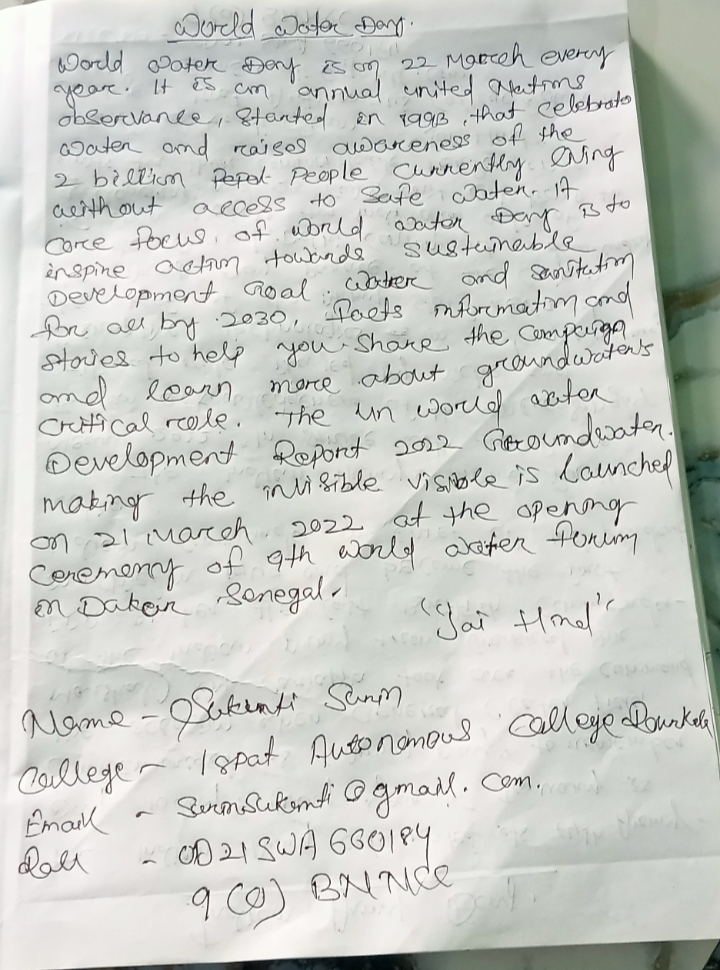 World Water Day.
World Water Day is on 22 March every
year. It is an annual united Nations
observance, started in 1993, that celebrate
water and raises awareness of the
2 billion Pepel People currently living
without access to safe water. It
core focus of world water Day is to
inspire action towards sustainable
Development Goal. water and sanitation
for all by 2030. Facts information and
stories to help you share the Campaign
and learn more about groundwater's
critical role. The un world water
Development Report 2022 Groundwater.
making the invisible visible is launched
on 21 March 2022 at the opening
ceremony of 9th world water Forum
in Daker Senegal.
"Jai Hind"
Name - Sukanti Surin
College - Ispat Autonomous College Rourkela
Email - Surinsukanti@gmail.com.
Roll - OD21SWA660184
9 (O) BNNCC